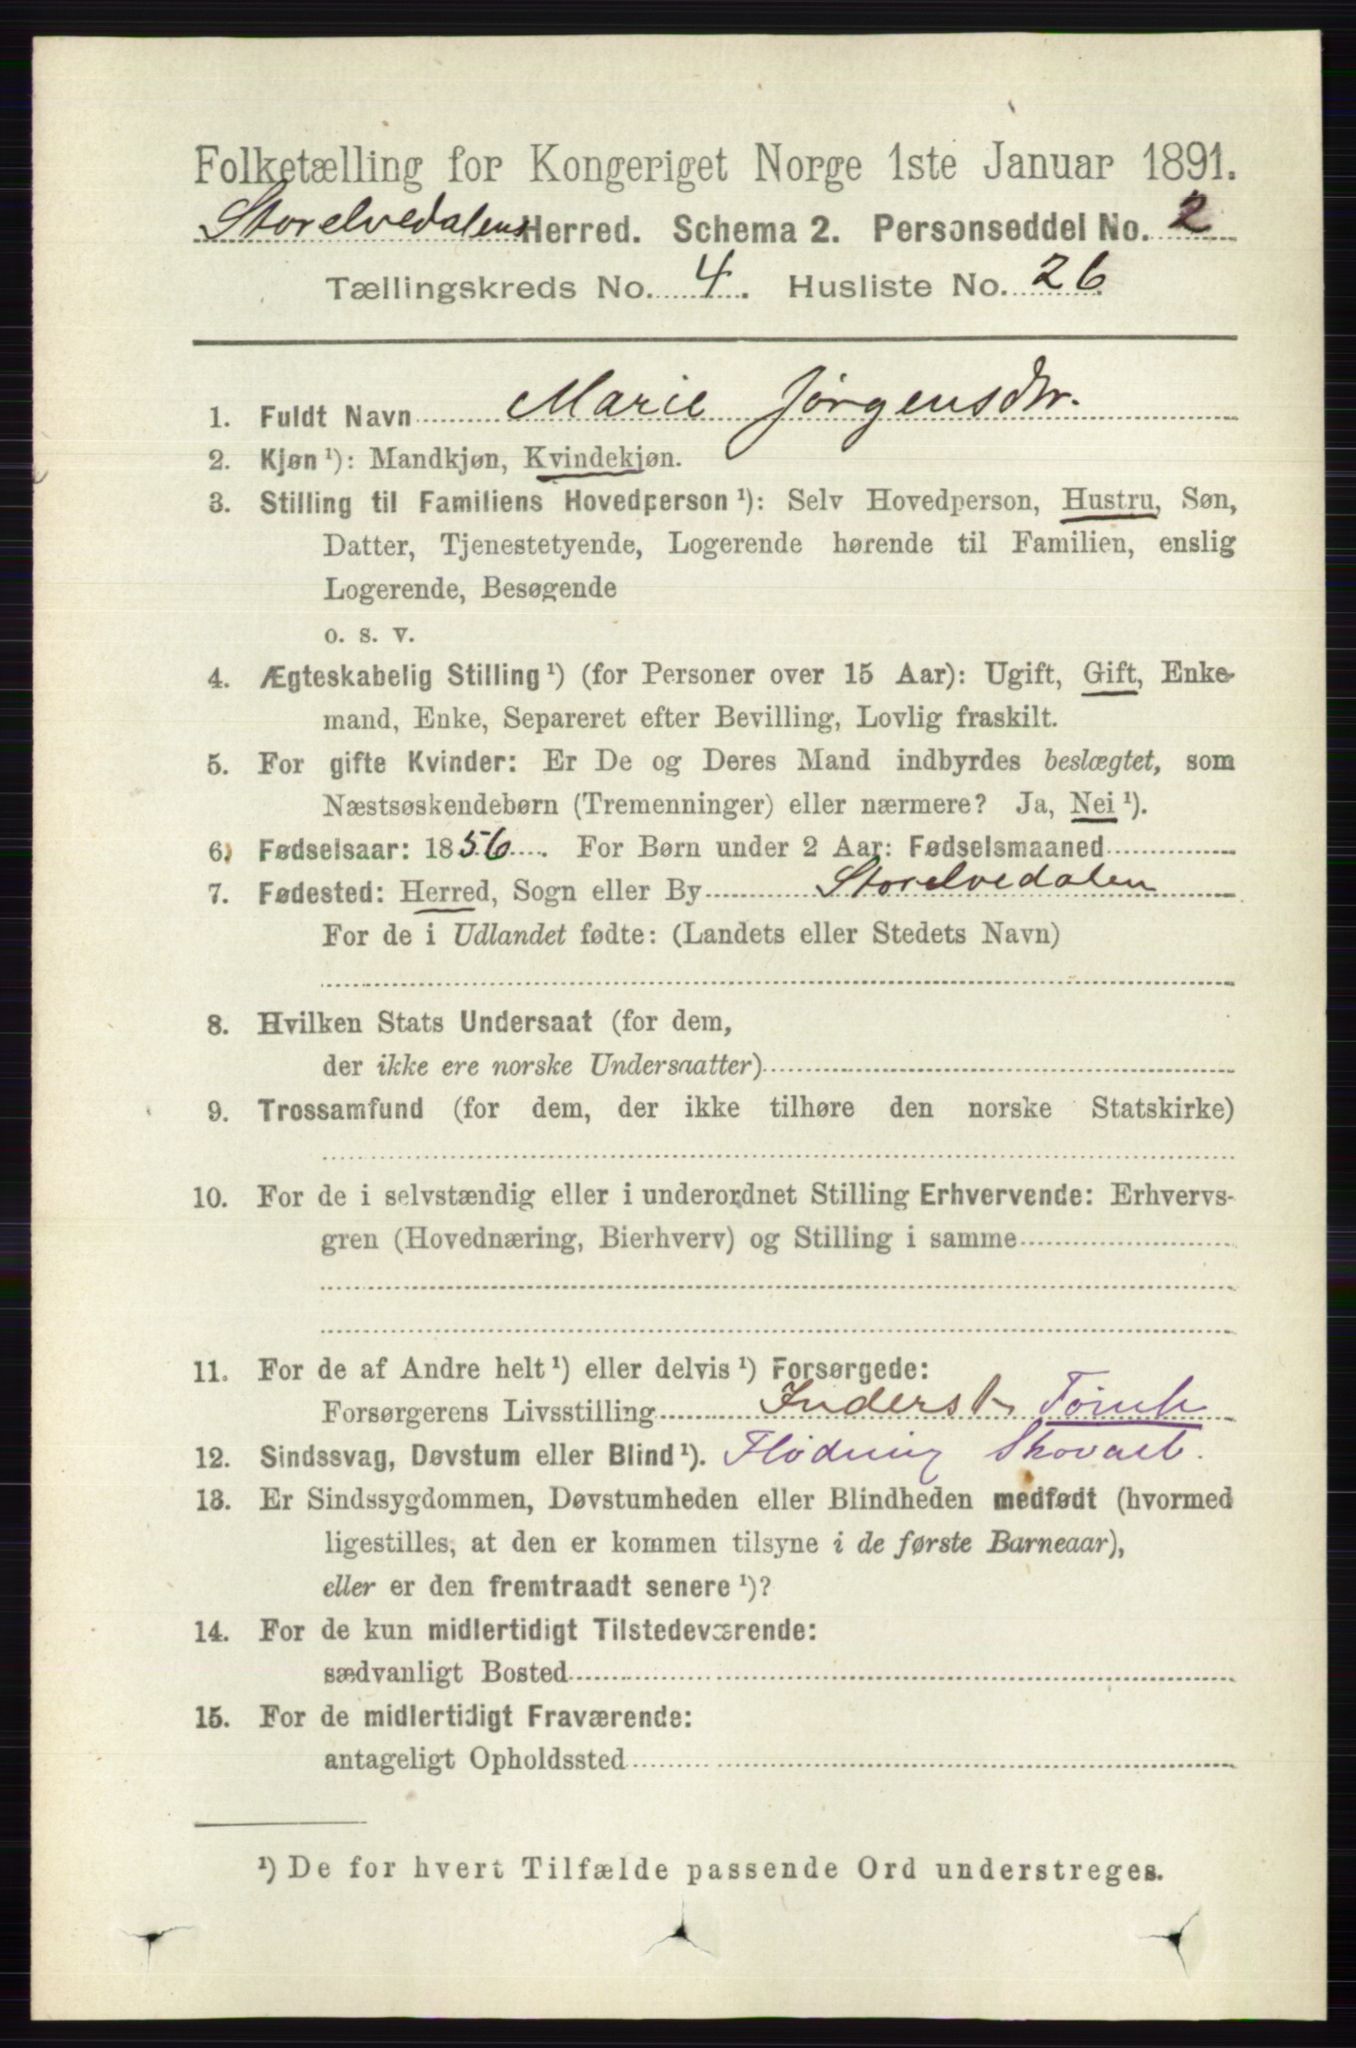 Folketælling for Kongeriget Norge 1ste Januar 1891.
Storelvedalens Herred. Schema 2. Personseddel No. 2
Tællingskreds No. 4. Husliste No. 26
1. Fuldt Navn Marie Jørgensdtr.
2. Kjøn ¹): Mandkjøn, Kvindekjøn.
3. Stilling til Familiens Hovedperson ¹): Selv Hovedperson, Hustru, Søn,
Datter, Tjenestetyende, Logerende hørende til Familien, enslig
Logerende, Besøgende
o. s. v.
4. Ægteskabelig Stilling ¹) (for Personer over 15 Aar): Ugift, Gift, Enke-
mand, Enke, Separeret efter Bevilling, Lovlig fraskilt.
5. For gifte Kvinder: Er De og Deres Mand indbyrdes beslægtet, som
Næstsøskendebørn (Tremenninger) eller nærmere? Ja, Nei ¹).
6. Fødselsaar: 1856. For Børn under 2 Aar: Fødselsmaaned
7. Fødested: Herred, Sogn eller By Storelvedalen
For de i Udlandet fødte: (Landets eller Stedets Navn)
8. Hvilken Stats Undersaat (for dem,
der ikke ere norske Undersaatter)
9. Trossamfund (for dem, der ikke tilhøre den norske Statskirke)
10. For de i selvstændig eller i underordnet Stilling Erhvervende: Erhvervs-
gren (Hovednæring, Bierhverv) og Stilling i samme
11. For de af Andre helt ¹) eller delvis ¹) Forsørgede:
Forsørgerens Livsstilling Inderst
12. Sindssvag, Døvstum eller Blind ¹). Flødning
13. Er Sindssygdommen, Døvstumheden eller Blindheden medfødt (hvormed
ligestilles, at den er kommen tilsyne i de første Barneaar),
eller er den fremtraadt senere ¹)?
14. For de kun midlertidigt Tilstedeværende:
sædvanligt Bosted
15. For de midlertidigt Fraværende:
antageligt Opholdssted
¹) De for hvert Tilfælde passende Ord understreges.